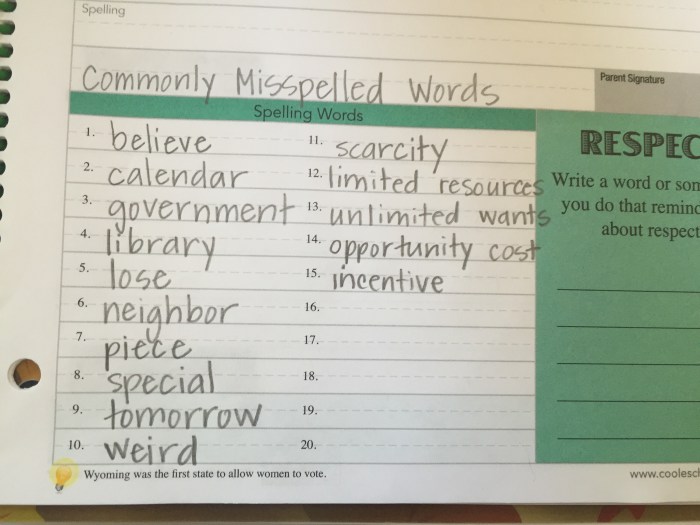 Spelling
Commonly Misspelled Words
Parent Signature
Spelling Words
1. believe
2. calendar
3. government
4. library
5. lose
6. neighbor
7. piece
8. special
9. tomorrow
10. weird
11. scarcity
12. limited resources
13. unlimited wants
14. opportunity cost
15. incentive
16.
17.
18.
19.
20.
RESPEC
Write a word or son
you do that remind
about respect
Wyoming was the first state to allow women to vote.
www.coolescl